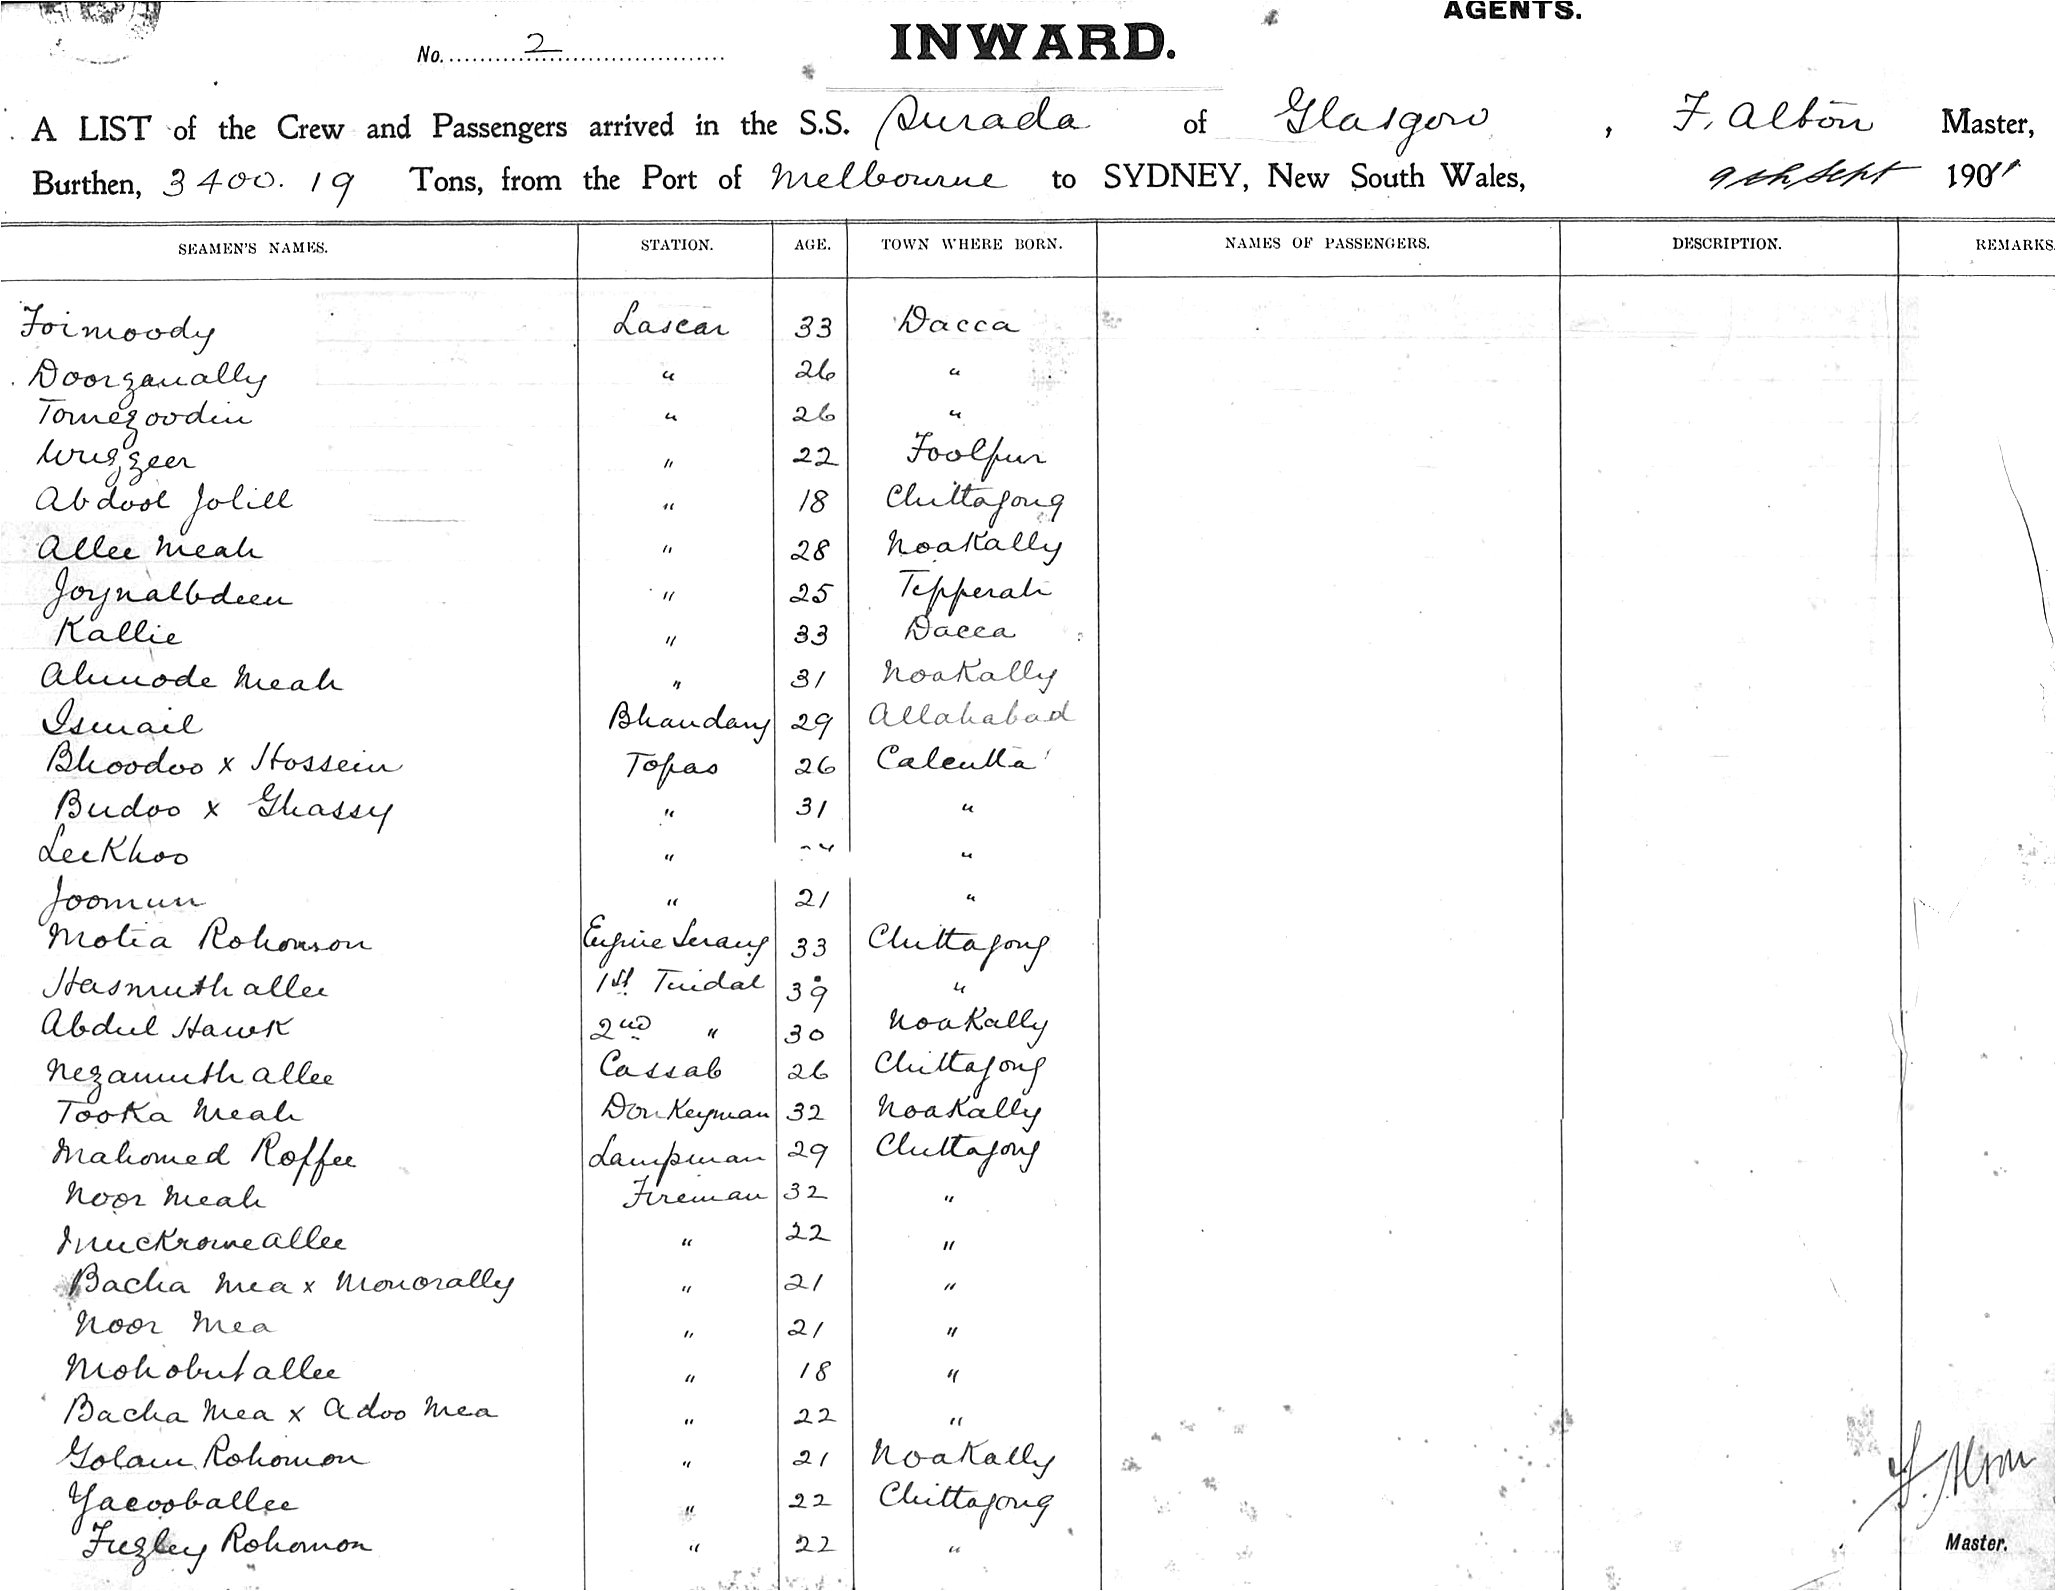 AGENTS.
No. 2
INWARD.
A LIST of the Crew and Passengers arrived in the S.S. Surada of Glasgow, F. Alton Master,
Burthen, 3400.19 Tons, from the Port of Melbourne to SYDNEY, New South Wales, 9th Sept 1901
SEAMEN'S NAMES. STATION. AGE. TOWN WHERE BORN. NAMES OF PASSENGERS. DESCRIPTION. REMARKS.
Foimoody Lascar 33 Dacca
Doorganally " 26 "
Tomezoodin " 26 "
" 22 Foolpur
Abdool Jolill " 18 Chittagong
Allee Meah " 28 Noakally
Joynalbdeen " 25 Tepperah
Kallie " 33 Dacca
Ahmode Meah " 31 Noakally
Ismail Bhandary 29 Allahabad
Bhoodoo x Hossein Topas 26 Calcutta
Budoo x Ghassy " 31 "
Leekhoo " "
Joomun " 21 "
Motia Rohomon Engine Serang 33 Chittagong
Hasmuthallee 1st Tindal 39 "
Abdul Hawk 2nd " 30 Noakally
Nezamuthallee Cassab 26 Chittagong
Tooka Meah Donkeyman 32 Noakally
Mahomed Roffee Lampman 29 Chittagong
Noor Meah Fireman 32 "
Muckromeallee " 22 "
Bacha Mea x Monorally " 21 "
Noor Mea " 21 "
Mohobutallee " 18 "
Bacha Mea x Adoo Mea " 22 "
Golam Rohomon " 21 Noakally
Yacooballee " 22 Chittagong
Fuzley Rohomon " 22 "
F. Alton
Master.